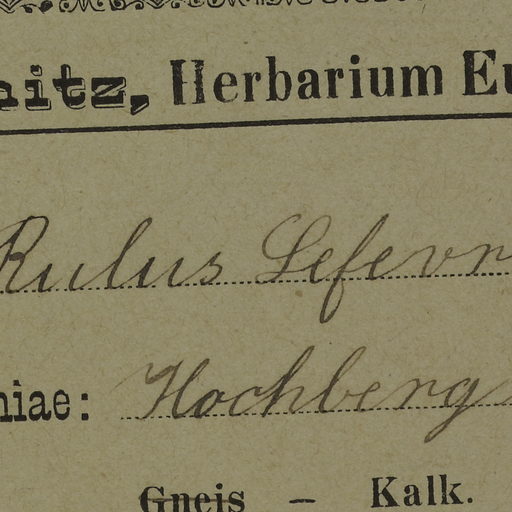 nitz, Herbarium Eu
Rulus Lefevr
niae: Hochberg
Gneis – Kalk.